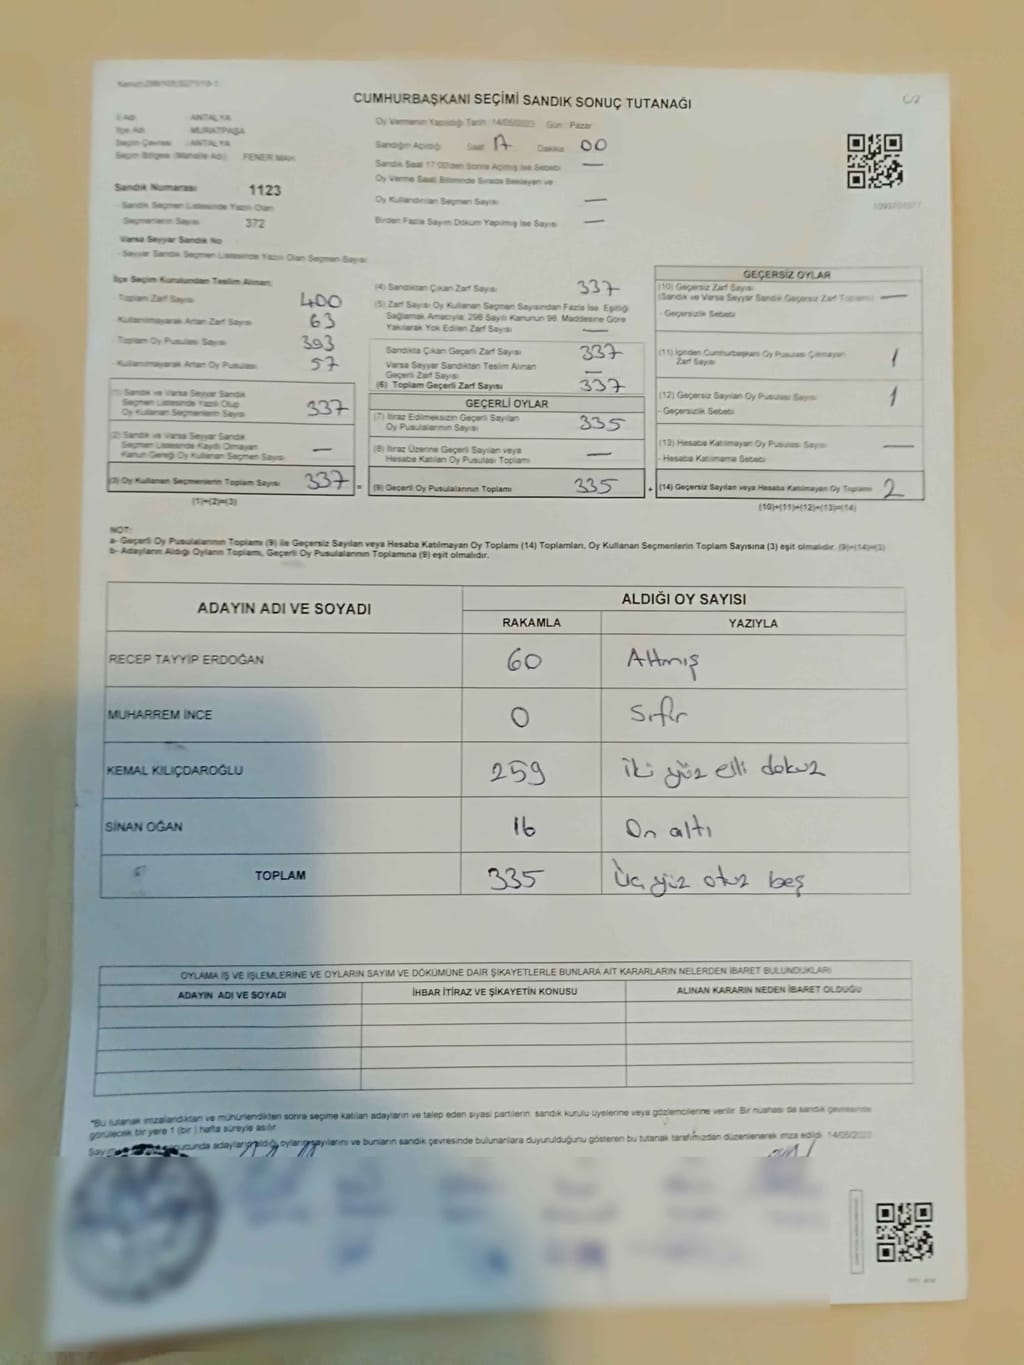 CUMHURBAŞKANI SEÇİMİ SANDIK SONUÇ TUTANAĞI
C/2
İl Adı ANTALYA
İlçe Adı MURATPAŞA
Seçim Çevresi ANTALYA
Seçim Bölgesi (Mahalle Adı) FENER MAH.
Sandık Numarası 1123
- Sandık Seçmen Listesinde Yazılı Olan
Seçmenlerin Sayısı 372
Varsa Seyyar Sandık No
- Seyyar Sandık Seçmen Listesinde Yazılı Olan Seçmen Sayısı
Oy Vermenin Yapıldığı Tarih : 14/05/2023 Gün : Pazar
Sandığın Açıldığı Saat 17 Dakika 00
Sandık Saat 17:00'den Sonra Açılmış İse Sebebi —
Oy Verme Saati Bitiminde Sırada Bekleyen ve
Oy Kullandırılan Seçmen Sayısı —
Birden Fazla Sayım Döküm Yapılmış İse Sayısı —
İlçe Seçim Kurulundan Teslim Alınan;
- Toplam Zarf Sayısı 400
- Kullanılmayarak Artan Zarf Sayısı 63
- Toplam Oy Pusulası Sayısı 393
- Kullanılmayarak Artan Oy Pusulası 57
(1) Sandık ve Varsa Seyyar Sandık
Seçmen Listesinde Yazılı Olup
Oy Kullanan Seçmenlerin Sayısı 337
(2) Sandık ve Varsa Seyyar Sandık
Seçmen Listesinde Kayıtlı Olmayan
Kanun Gereği Oy Kullanan Seçmen Sayısı —
(3) Oy Kullanan Seçmenlerin Toplam Sayısı 337 =
(1)+(2)=(3)
(4) Sandıktan Çıkan Zarf Sayısı 337
(5) Zarf Sayısı Oy Kullanan Seçmen Sayısından Fazla İse, Eşitliği
Sağlamak Amacıyla, 298 Sayılı Kanunun 98. Maddesine Göre
Yakılarak Yok Edilen Zarf Sayısı —
Sandıkta Çıkan Geçerli Zarf Sayısı 337
Varsa Seyyar Sandıktan Teslim Alınan
Geçerli Zarf Sayısı —
(6) Toplam Geçerli Zarf Sayısı 337
GEÇERLİ OYLAR
(7) İtiraz Edilmeksizin Geçerli Sayılan
Oy Pusulalarının Sayısı 335
(8) İtiraz Üzerine Geçerli Sayılan veya
Hesaba Katılan Oy Pusulası Toplamı —
(9) Geçerli Oy Pusulalarının Toplamı 335 +
GEÇERSİZ OYLAR
(10) Geçersiz Zarf Sayısı
(Sandık ve Varsa Seyyar Sandık Geçersiz Zarf Toplamı) —
- Geçersizlik Sebebi
(11) İçinden Cumhurbaşkanı Oy Pusulası Çıkmayan
Zarf Sayısı 1
(12) Geçersiz Sayılan Oy Pusulası Sayısı 1
- Geçersizlik Sebebi
(13) Hesaba Katılmayan Oy Pusulası Sayısı —
- Hesaba Katılmama Sebebi
(14) Geçersiz Sayılan veya Hesaba Katılmayan Oy Toplamı 2
(10)+(11)+(12)+(13)=(14)
NOT:
a- Geçerli Oy Pusulalarının Toplamı (9) ile Geçersiz Sayılan veya Hesaba Katılmayan Oy Toplamı (14) Toplamları, Oy Kullanan Seçmenlerin Toplam Sayısına (3) eşit olmalıdır. (9)+(14)=(3)
b- Adayların Aldığı Oyların Toplamı, Geçerli Oy Pusulalarının Toplamına (9) eşit olmalıdır.
ADAYIN ADI VE SOYADI ALDIĞI OY SAYISI
RAKAMLA YAZIYLA
RECEP TAYYİP ERDOĞAN 60 Altmış
MUHARREM İNCE 0 Sıfır
KEMAL KILIÇDAROĞLU 259 iki yüz elli dokuz
SİNAN OĞAN 16 On altı
TOPLAM 335 Üç yüz otuz beş
OYLAMA İŞ VE İŞLEMLERİNE VE OYLARIN SAYIM VE DÖKÜMÜNE DAİR ŞİKAYETLERLE BUNLARA AİT KARARLARIN NELERDEN İBARET BULUNDUKLARI
ADAYIN ADI VE SOYADI İHBAR İTİRAZ VE ŞİKAYETİN KONUSU ALINAN KARARIN NEDEN İBARET OLDUĞU
*Bu tutanak imzalandıktan ve mühürlendikten sonra seçime katılan adayların ve talep eden siyasi partilerin sandık kurulu üyelerine veya gözlemcilerine verilir. Bir nüshası da sandık çevresinde
görülecek bir yere 1 (bir) hafta süreyle asılır.
Sayım sonucunda adayların aldığı oyların sayılarını ve bunların sandık çevresinde bulunanlara duyurulduğunu gösteren bu tutanak tarafımızdan düzenlenerek imza edildi. 14/05/2023